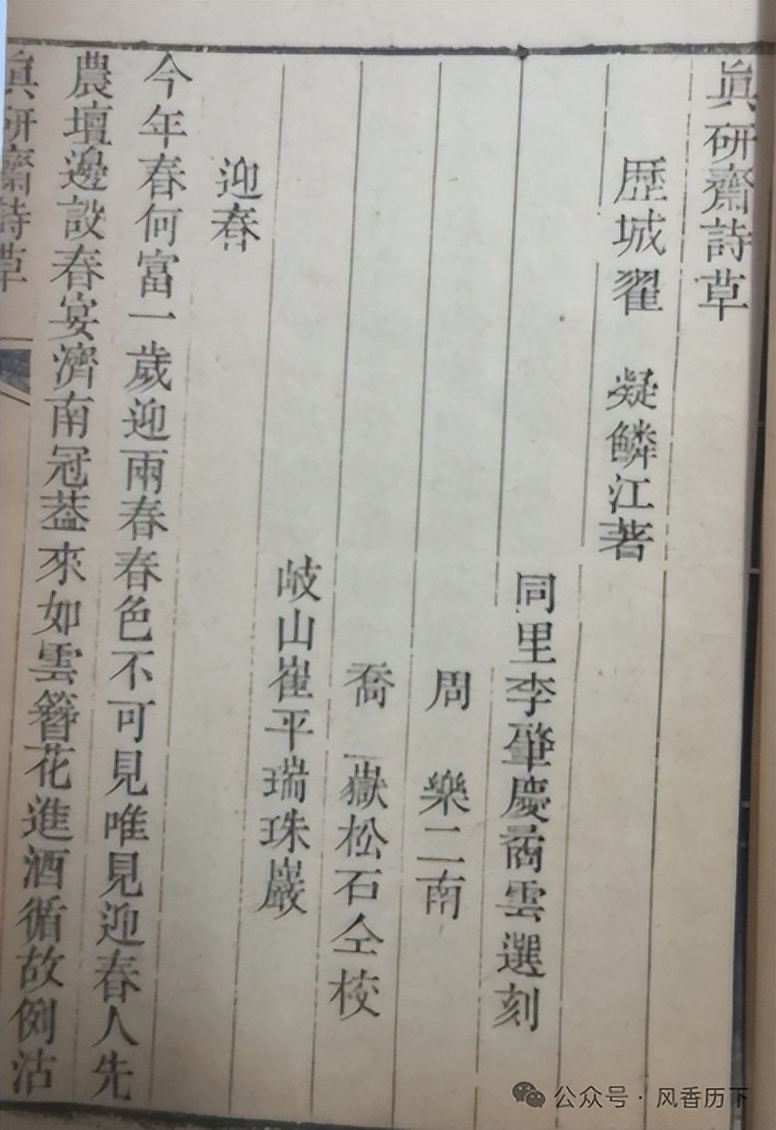 眞研齋詩草
歷城翟　凝鱗江著
同里李肇慶喬雲選刻
周　樂二南
喬　嶽松石仝校
岐山崔平瑞珠巖
迎春
今年春何富一歲迎兩春春色不可見唯見迎春人先
農壇邊設春宴濟南冠葢來如雲簪花進酒循故例沽
眞研齋詩草
公众号·风香历下